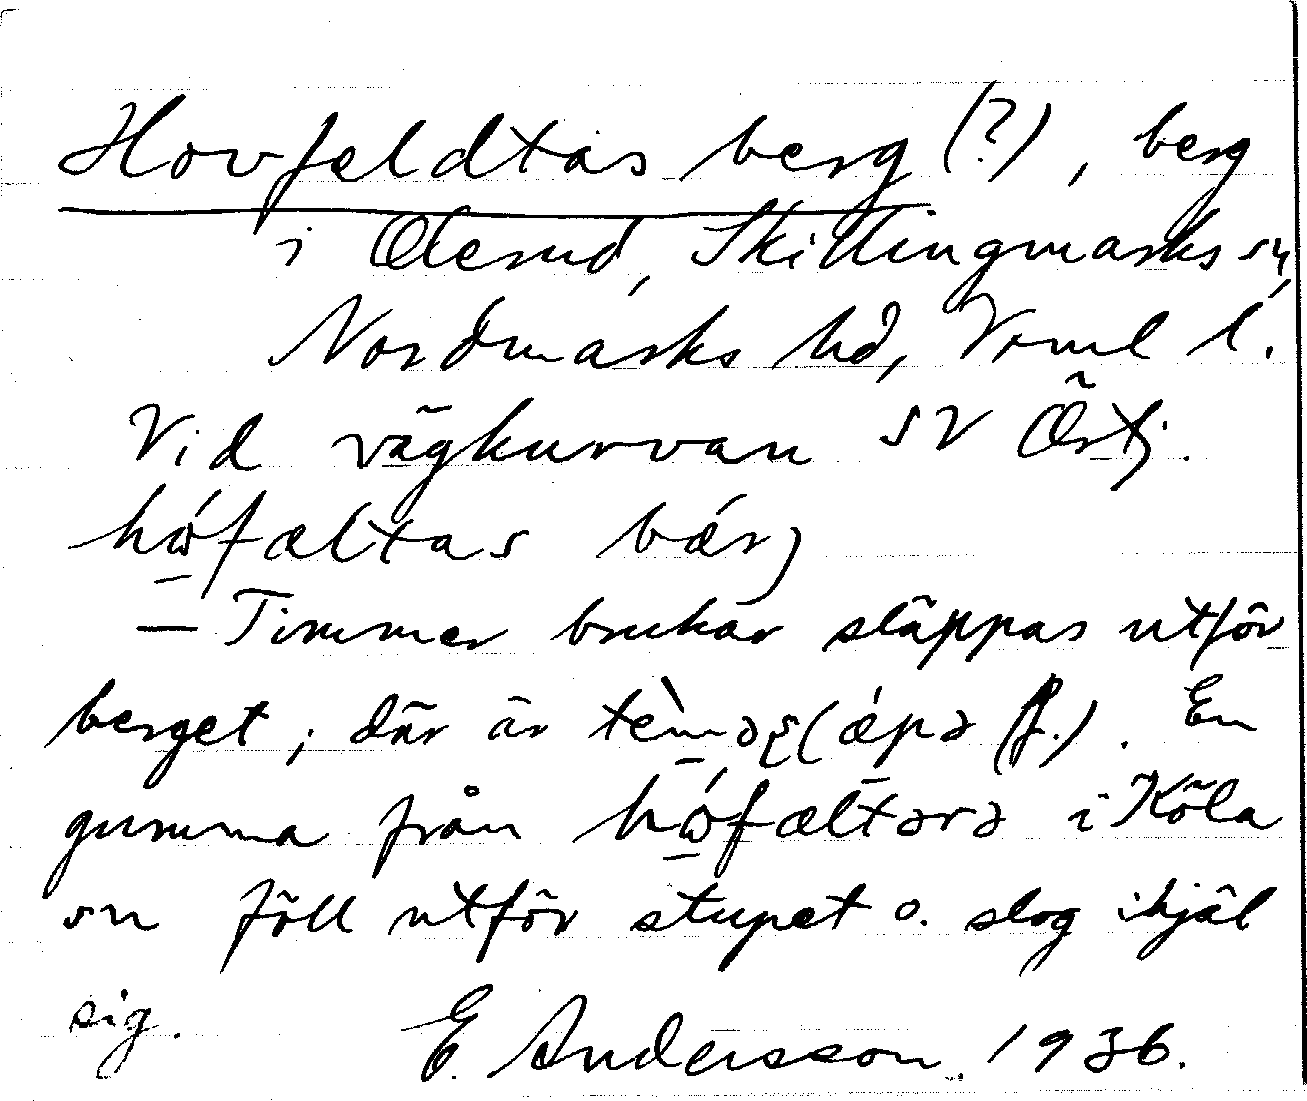 Hovfeldtas berg (?), berg
i Olerud, Skillingmarks sn,
Nordmarks hd, Vrml l.
Vid vägkurvan SV Östj.
hǿfæltas bǽrj
— Timmer brukar släppas utför
berget; där är (f.). En
gumma från i Köla
sn föll utför stupet o. slog ihjäl
sig. E. Andersson. 1936.